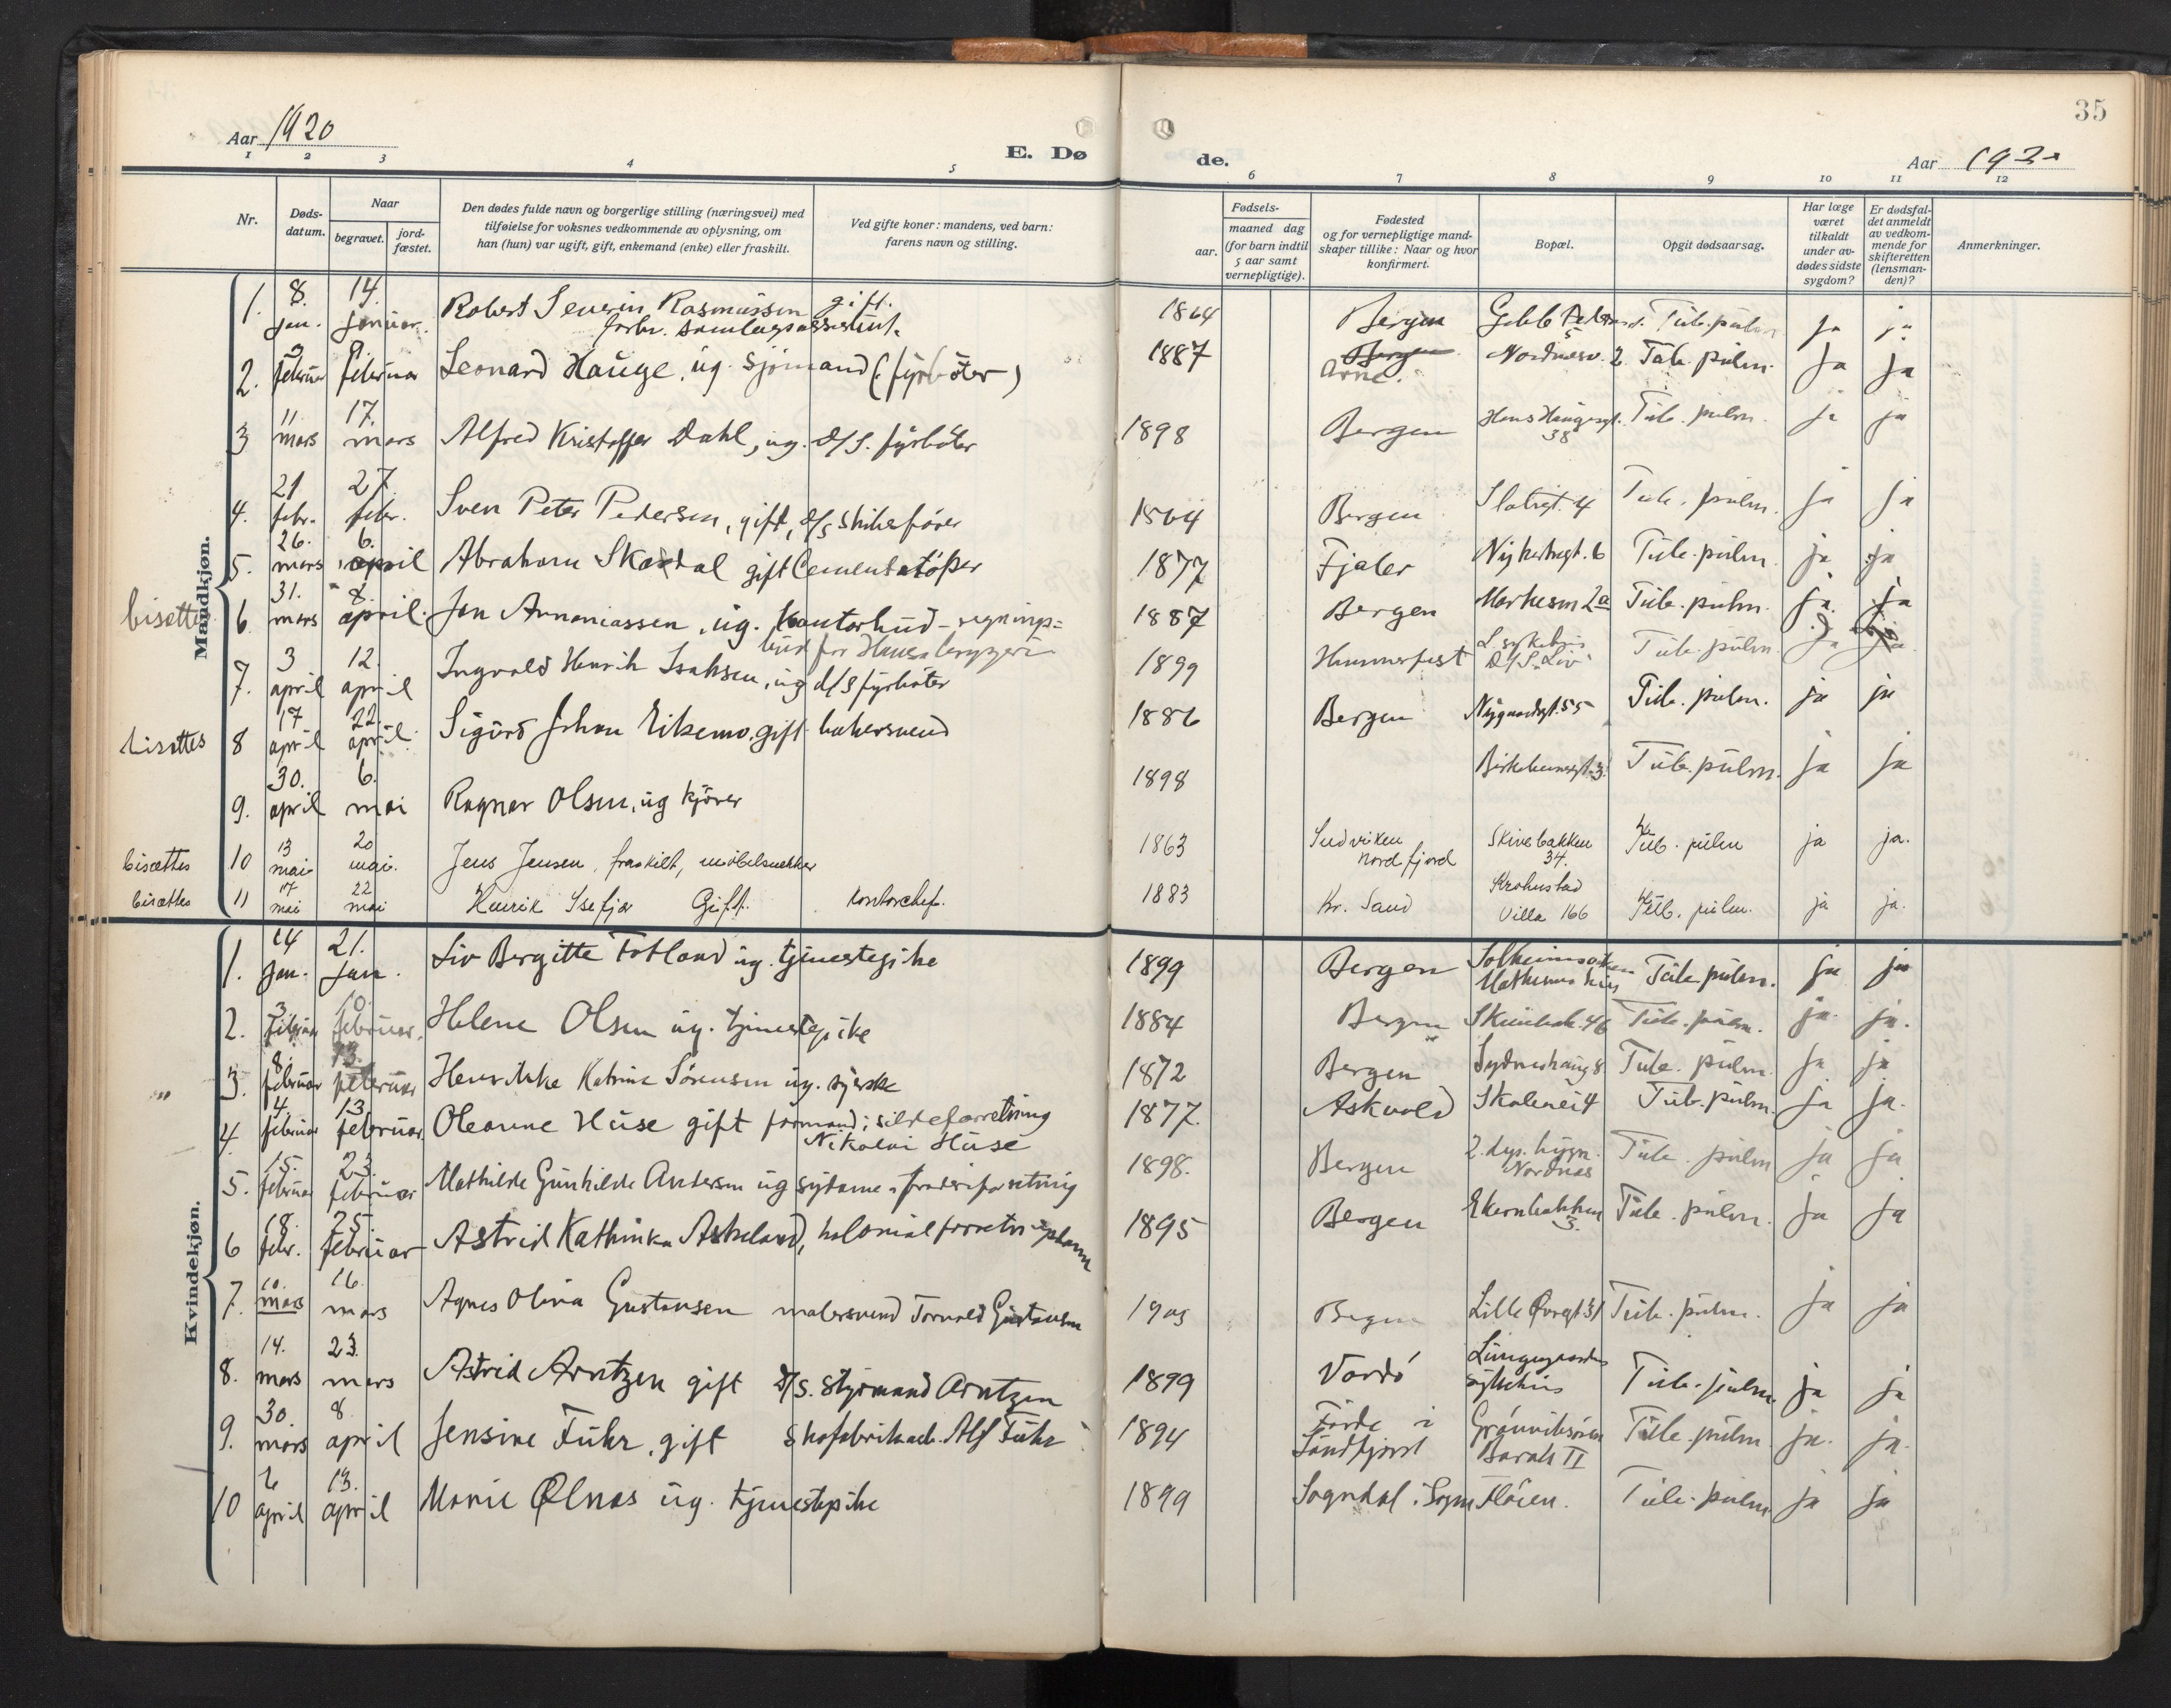 35
Aar 1920
E. Dø
de.
Aar 1920
1 2 3 4 5 6 7 8 9 10 11 12
Nr.
Døds-datum.
Naar
begravet.
jord-fæstet.
Den dødes fulde navn og borgerlige stilling (næringsvei) med
tilføielse for voksnes vedkommende av oplysning, om
han (hun) var ugift, gift, enkemand (enke) eller fraskilt.
Ved gifte koner: mandens, ved barn:
farens navn og stilling.
Fødsels-
aar.
maaned dag
(for barn indtil
5 aar samt
vernepligtige).
Fødested
og for vernepligtige mand-
skaper tillike: Naar og hvor
konfirmert.
Bopæl.
Opgit dødsaarsag.
Har læge
været
tilkaldt
under av-
dødes sidste
sygdom?
Er dødsfal-
det anmeldt
av vedkom-
mende for
skifteretten
(lensman-
den)?
Anmerkninger.
Mandkjøn.
1. 8. jan. 14. januar. Robert Severin Rasmussen gift. 1864 Bergen 5 Tub. pulm ja ja
forhv. samlagsassistent.
2. februar februar Leonard Hauge, ug. sjömand (fyrböter) 1887 Bergen Arne. Nordnesv. 2. Tub. pulm. ja ja
3 11. mars 17. mars Alfred Kristoffer Dahl, ug. D/S. fyrböter 1898 Bergen Hans Haugesgt. 38 Tub. pulm. ja ja
4. 21 febr. 27. febr. Sven Peter Pedersen, gift, d/s skibsförer 1864 Bergen Slotsgt. 4 Tub. pulm. ja ja
5. 26. mars 6. april Abraham Skardal gift Cementstöper 1877 Fjaler Nykirkegt. 6 Tub. pulm. ja ja
bisættes 6. 31. mars 8. april. Jan Annaniassen, ug. kontorbud - regnings=
bud for Hansa bryggeri 1887 Bergen Markesm 2a Tub. pulm. ja. ja
7. 3 april 12. april Ingvald Henrik Isaksen, ug d/s fyrböter 1899 Hammerfest L. sykehus D/S. "Liv" Tub. pulm. ja ja
bisættes 8 17 april 22. april. Sigurd Johan Eikemo. gift bakersvend 1886 Bergen Nygaardsgt. 55 Tub. pulm. ja ja
9. 30. april 6. mai Ragnar Olsen, ug kjörer 1898 Birkebeinersgt. 3 Tub. pulm. ja ja
bisættes 10 13 mai 20 mai. Jens Jensen, fraskilt, möbelsnekker 1863 Nordfjord Skivebakken 34. Tub. pulm ja ja.
bisættes 11 17 mai 22 mai Henrik Isefjær Gift. Kontorchef. 1883 Kr. Sand Krohnstad Villa 166 Tub. pulm. ja ja.
Kvindekjøn.
1. 14 jan. 21. jan. Liv Bergitte Totland ug. tjenestepike 1899 Bergen Solheimsviken Tub. pulm. ja ja
2. 3 februar 10. februar. Helene Olsen ug. tjenestepike 1884 Bergen Skivebak. 46 Tub. pulm. ja. ja.
3. 8. februar 13. februar Henrikke Katrine Sörensen ug. syerske 1872 Bergen Sydneshaug 8. Tub. pulm. ja ja
4. 4. februar 13. februar. Oleanne Huse gift formand i sildeforretning
Nikolai Huse 1877. Askvold Skolevei 4 Tub. pulm. ja ja.
5. 15. februar 23. februar Mathilde Gunhilde Andersen ug sydame i 1898. Bergen Nordnes Tub. pulm ja ja
6 18. febr. 25. februar Astrid Kathinka Askeland, kolonialforretn 1895 Bergen Ekernbakken 3. Tub. pulm. ja ja
7. 10. mars 16. mars Agnes Olina Gustavsen malersvend Torvald Gustavsen 1903 Bergen Lille Øvregt 31 Tub. pulm. ja ja
8. 14. mars 23. mars Astrid Arntzen gift D/S. Styrmand Arntzen 1899 Vardö Lungegaardens sykehus Tub. pulm. ja ja
9. 30. mars 8. april Jensine Führ, gift Skofabrikarb. Alf Führ 1894 Förde i Söndfjord Grönviksören Barak II Tub. pulm. ja. ja.
10 6 april 13. april Marie Ølnes ug. tjenestepike 1899 Sogndal i Sogn Flöien. Tub. pulm ja ja